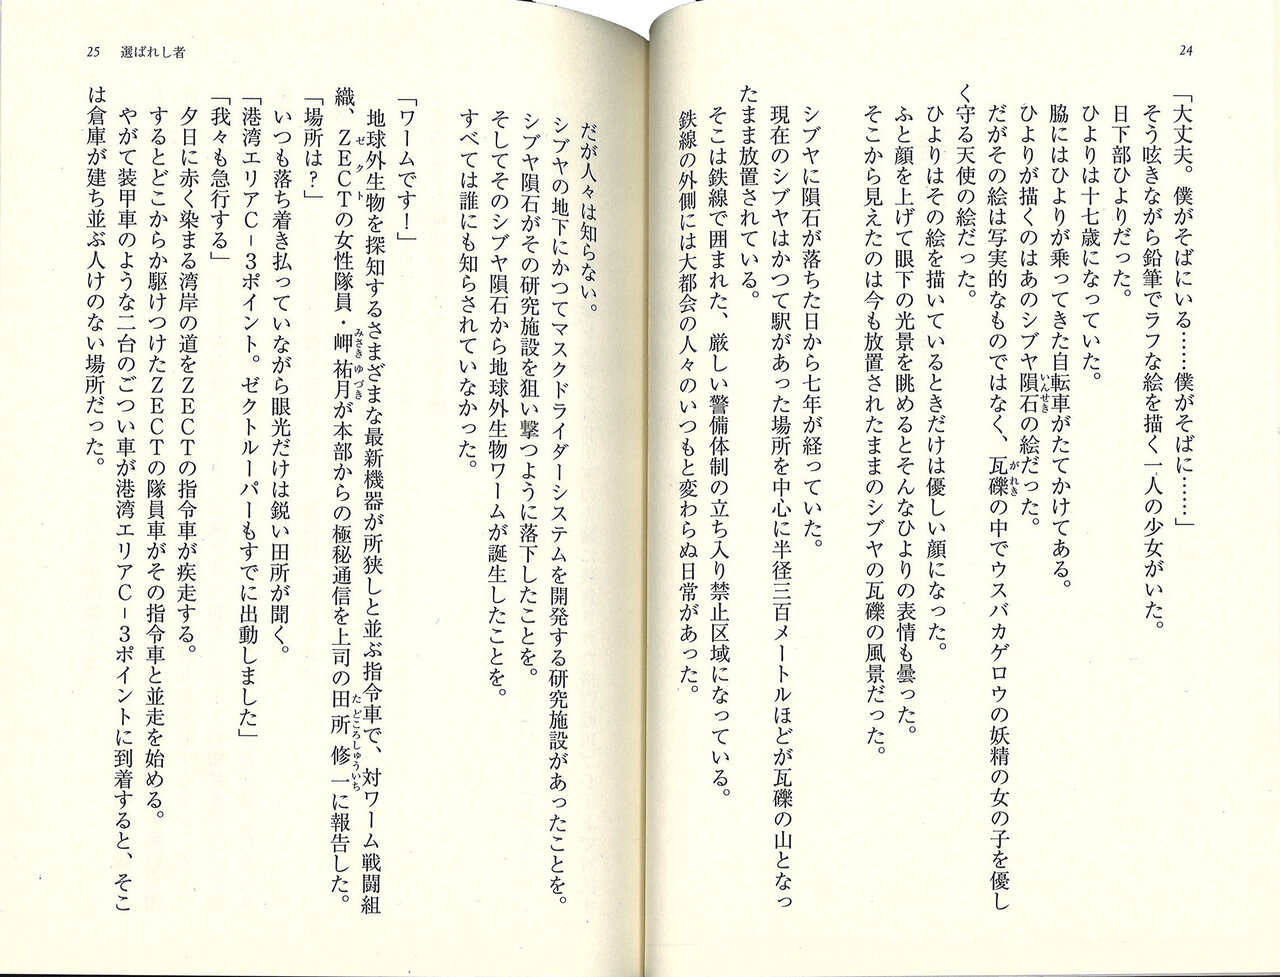 24
「大丈夫。僕がそばにいる……僕がそばに……」
そう呟きながら鉛筆でラフな絵を描く一人の少女がいた。
日下部ひよりだった。
ひよりは十七歳になっていた。
脇にはひよりが乗ってきた自転車がたてかけてある。
ひよりが描くのはあのシブヤ隕石の絵だった。
いんせき
だがその絵は写実的なものではなく、瓦礫の中でウスバカゲロウの妖精の女の子を優し
がれき
く守る天使の絵だった。
ひよりはその絵を描いているときだけは優しい顔になった。
ふと顔を上げて眼下の光景を眺めるとそんなひよりの表情も曇った。
そこから見えたのは今も放置されたままのシブヤの瓦礫の風景だった。
シブヤに隕石が落ちた日から七年が経っていた。
現在のシブヤはかつて駅があった場所を中心に半径三百メートルほどが瓦礫の山となっ
たまま放置されている。
そこは鉄線で囲まれた、厳しい警備体制の立ち入り禁止区域になっている。
鉄線の外側には大都会の人々のいつもと変わらぬ日常があった。
25 選ばれし者
だが人々は知らない。
シブヤの地下にかつてマスクドライダーシステムを開発する研究施設があったことを。
シブヤ隕石がその研究施設を狙い撃つように落下したことを。
そしてそのシブヤ隕石から地球外生物ワームが誕生したことを。
すべては誰にも知らされていなかった。
「ワームです！」
地球外生物を探知するさまざまな最新機器が所狭しと並ぶ指令車で、対ワーム戦闘組
織、ZECTの女性隊員・岬祐月が本部からの極秘通信を上司の田所修一に報告した。
ゼクト
みさきゆづき
たどころしゅういち
「場所は？」
いつも落ち着き払っていながら眼光だけは鋭い田所が聞く。
「港湾エリアC－3ポイント。ゼクトルーパーもすでに出動しました」
「我々も急行する」
夕日に赤く染まる湾岸の道をZECTの指令車が疾走する。
するとどこからか駆けつけたZECTの隊員車がその指令車と並走を始める。
やがて装甲車のような二台のごつい車が港湾エリアC－3ポイントに到着すると、そこ
は倉庫が建ち並ぶ人けのない場所だった。